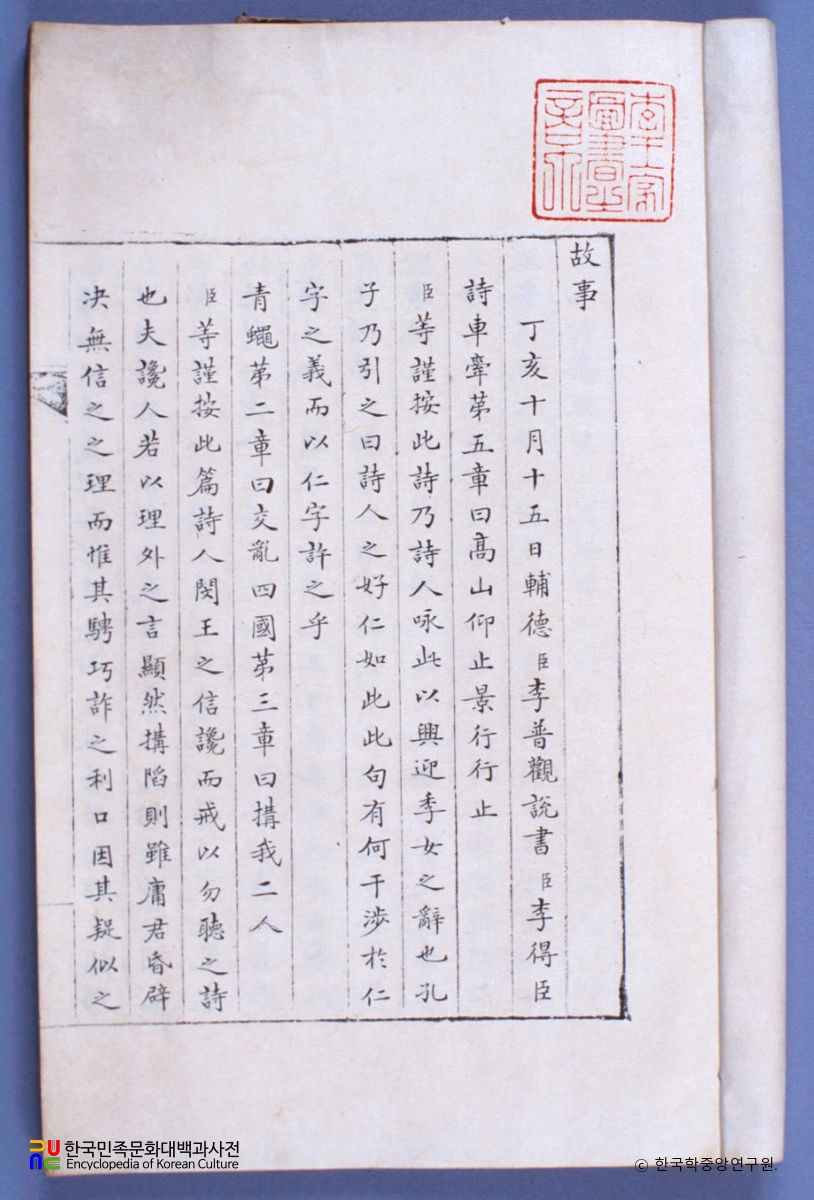 李王家
圖書之
章
故事
丁亥十月十五日輔德臣李普觀說書臣李得臣
詩車舝第五章曰高山仰止景行行止
臣等謹按此詩乃詩人咏此以興迎季女之辭也孔
子乃引之曰詩人之好仁如此此句有何干涉於仁
字之義而以仁字許之乎
青蠅第二章曰交亂四國第三章曰搆我二人
臣等謹按此篇詩人閔王之信讒而戒以勿聽之詩
也夫讒人若以理外之言顯然搆陷則雖庸君昏辟
决無信之之理而惟其騁巧詐之利口因其疑似之
한국민족문화대백과사전
Encyclopedia of Korean Culture
© 한국학중앙연구원.